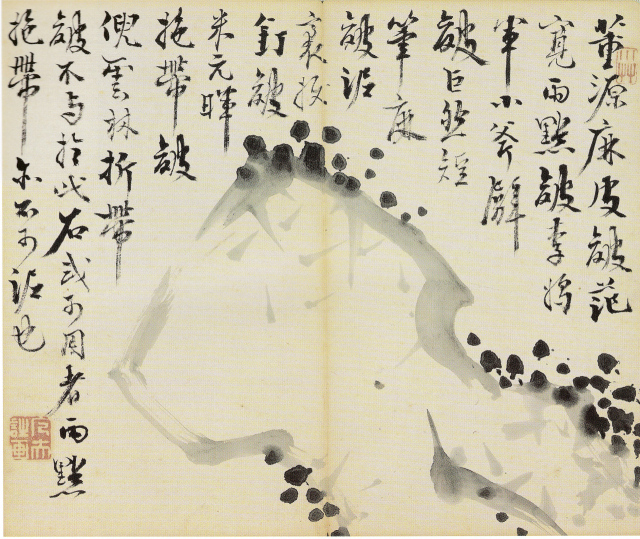 董源麻皮皴范
寬雨點皴李將
軍小斧劈
皴巨然短
筆麻
皴泥
裹拔
釘皴
米元暉
拖帶皴
倪雲林折帶
皴不与於此石或可用者雨點
拖帶亦不可泥也